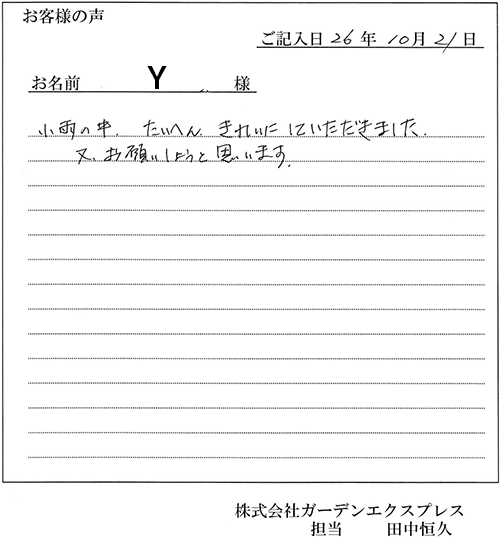 お客様の声
ご記入日 26 年 10月 21 日
お名前 Y 様
小雨の中、たいへん きれいにしていただきました。
又、お願いしようと思います。
株式会社ガーデンエクスプレス
担当 田中恒久